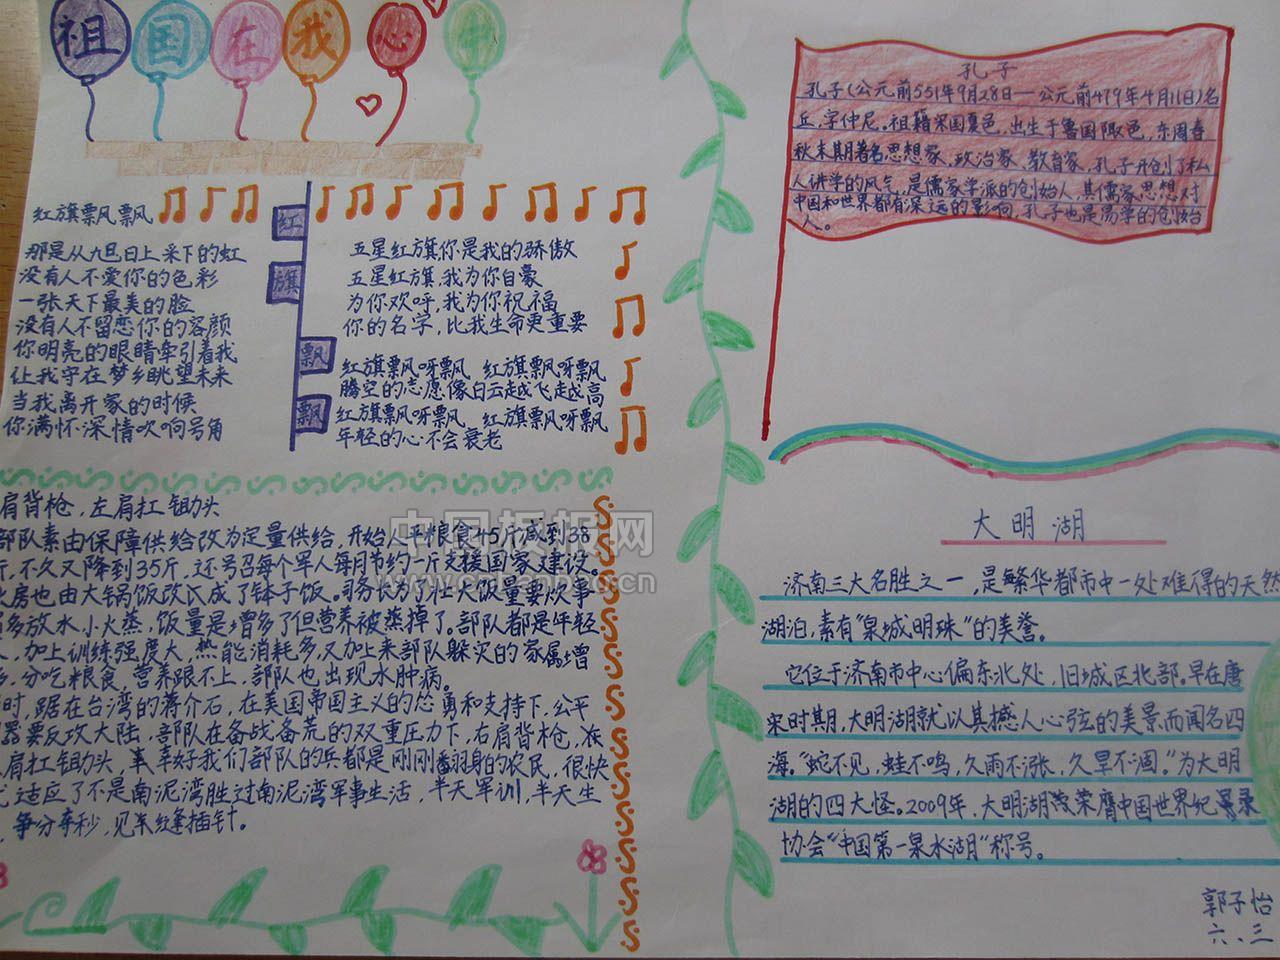 祖国在我心中
红旗飘飘
那是从九旦日上采下的虹
没有人不爱你的色彩
一张天下最美的脸
没有人不留恋你的容颜
你明亮的眼睛牵引着我
让我守在梦乡眺望未来
当我离开家的时候
你满怀深情吹响号角
红
旗
飘
飘
五星红旗你是我的骄傲
五星红旗,我为你自豪
为你欢呼,我为你祝福
你的名字,比我生命更重要
红旗飘呀飘 红旗飘呀飘
腾空的志愿像白云越飞越高
红旗飘呀飘、红旗飘呀飘
年轻的心不会衰老
肩背枪,左肩扛锄头
部队素由保障供给改为定量供给,开始人平粮食45斤减到38
斤,不久又降到35斤,还号召每个军人每月节约一斤支援国家建设。
房也由大锅饭改成了钵子饭。司务长为了壮大饭量要炊事
多放水小火蒸,饭量是增多了但营养被蒸掉了。部队都是年轻
,加上训练强度大,热能消耗多又加上来部队躲灾的家属增
多,分吃粮食,营养跟不上,部队也出现水肿病。
时,踞在台湾的蒋介石,在美国帝国主义的怂勇和支持下,公平
要反攻大陆,部队在备战备荒的双重压力下,右肩背枪,左
肩扛锄头,幸好我们部队的兵都是刚刚翻身的农民,很快
适应了不是南泥湾胜过南泥湾军事生活,半天军训,半天生
,争分夺秒,见缝插针。
孔子
孔子(公元前551年9月28日—公元前479年4月11日)名
丘,字仲尼。祖籍宋国夏邑,出生于鲁国陬邑,东周春
秋末期著名思想家,政治家、教育家,孔子开创了私
人讲学的风气,是儒家学派的创始人,其儒家思想对
中国和世界都有深远的影响,孔子也是易学的创始
人。
大明湖
济南三大名胜之一,是繁华都市中一处难得的天然
湖泊,素有“泉城明珠”的美誉。
它位于济南市中心偏东北处,旧城区北部。早在唐
宋时期,大明湖就以其撼人心弦的美景而闻名四
海。“蛇不见,蛙不鸣,久雨不涨,久旱不涸。”为大明
湖的四大怪。2009年,大明湖荣膺中国世界纪录
协会“中国第一泉水湖”称号。
郭子怡
六、三
中国板报网